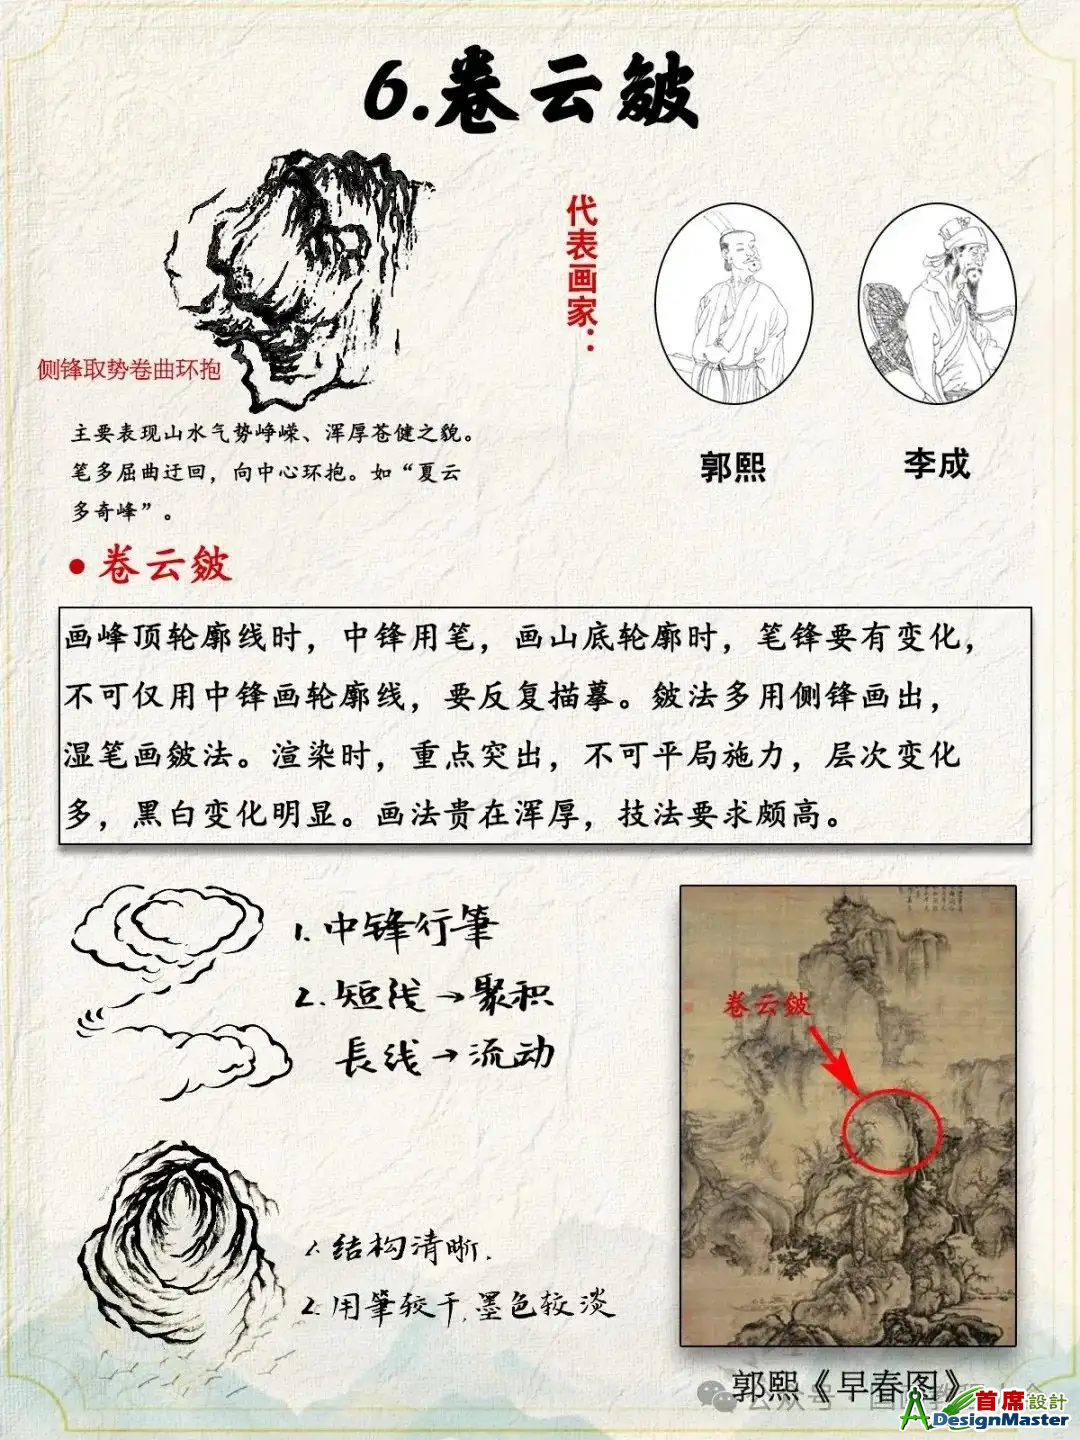 6.卷云皴
代表画家：
郭熙
李成
侧锋取势卷曲环抱
主要表现山水气势峥嵘、浑厚苍健之貌。
笔多屈曲迂回，向中心环抱。如“夏云
多奇峰”。
•卷云皴
画峰顶轮廓线时，中锋用笔，画山底轮廓时，笔锋要有变化，
不可仅用中锋画轮廓线，要反复描摹。皴法多用侧锋画出，
湿笔画皴法。渲染时，重点突出，不可平局施力，层次变化
多，黑白变化明显。画法贵在浑厚，技法要求颇高。
1.中锋行筆
2.短线→聚积
長线→流动
卷云皴
1.结构清晰.
2.用筆较干,墨色较淡
郭熙《早春图》
公众号
首席設計
ADesignMaster